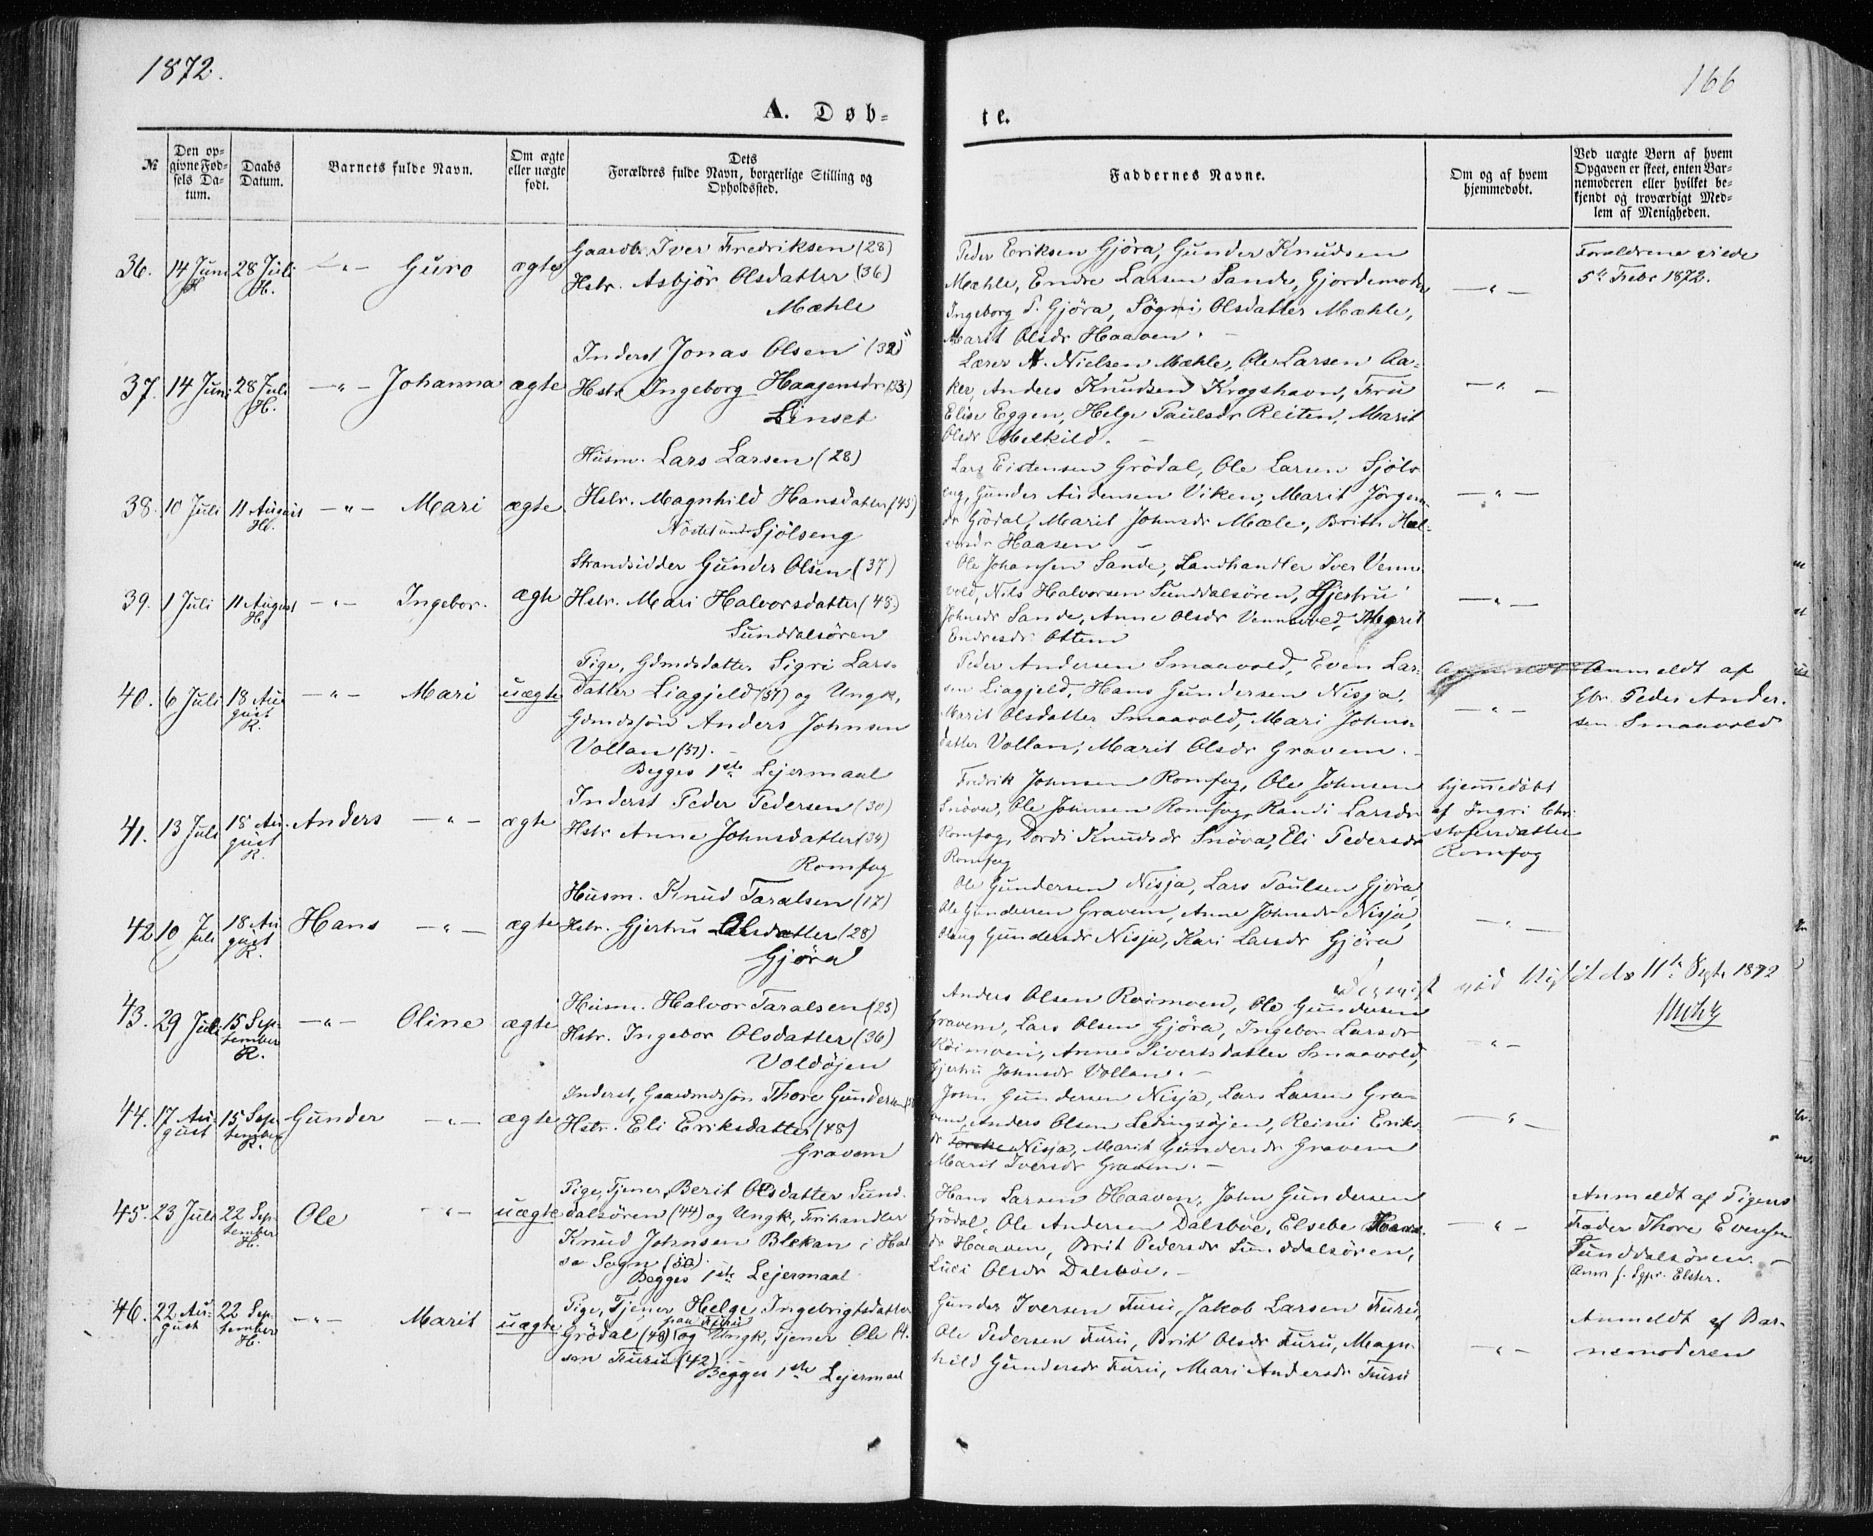 1872.
166
A. Døb-
te.
№
Den op-
givne Fød-
sels Da-
tum.
Daabs
Datum.
Barnets fulde Navn.
Om ægte
eller uægte
født.
Dets
Forældres fulde Navn, borgerlige Stilling og
Opholdssted.
Faddernes Navne.
Om og af hvem
hjemmedøbt.
Ved uægte Børn af hvem
Opgaven er skeet, enten Bar-
nemoderen eller hvilket be-
kjendt og troværdigt Med-
lem af Menigheden.
36. 14 Juni 28 Juli H. —„— Guro ægte
Gaardbr. Iver Fredriksen (28)
Hstr. Asbjör Olsdatter (36)
Mæhle
Peder Eriksen Gjöra, Gunder Knudsen
Mæhle, Endre Larsen Sande, Gjordemoder
Ingeborg P. Gjöra, Sögni Olsdatter Mæhle,
Marit Olsdr Haaven.
—„—
Forældrene viede
5te Febr 1872.
37. 14 Juni 28 Juli H. —„— Johanna ægte
Inderst Jonas Olsen (32)
Hstr Ingeborg Haagensdr (33)
Linset
Lærer A. Nielsen Mæhle, Ole Larsen Aa-
ker, Anders Knudsen Krogshavn, Fru
Elise Eggen, Helge Paulsdr Reiten, Marit
Olsdr Melkild.
—„—
38. 10 Juli 11 August H. —„— Mari ægte
Husm. Lars Larsen (28)
Hstr. Magnhild Hansdatter (45)
Sjölseng
Lars Eistensen Grödal, Ole Larsen Sjöls
eng, Gunder Audensen Viken, Marit Jörgens
dr Grödal, Marit Johnsdr Mæle, Brith Hal-
vorsdr Haasen
—„—
39. 1 Juli 11 August H. —„— Ingebor. ægte
Strandsidder Gunder Olsen (37)
Hstr. Mari Halvorsdatter (45)
Sunddalsören
Ole Johansen Sande, Landhandler Iver Venne
vold, Nils Halvorsen Sunddalsören, Gjertru
Johnsdr Sande, Anne Olsdr Vennevold, Margrit
Endresdr Ottem
—„—
40. 6 Juli 18 Au
gust R. —„— Mari uægte
Pige, Gdmdsdatter Sigri Lars-
datter Liagjeld (51) og Ungk,
Gdmdssön Anders Johnsen
Vollan (51).
Begges 1ste Lejermaal
Peder Andersen Smaavold, Even Lar-
sen Liagjeld, Hans Gundersen Nisja,
Marit Olsdatter Smaavold, Mari Johns-
datter Vollan, Marit Olsdr Gravem.
—„—
Anmeldt af
Gbr. Peder Ander-
sen Smaavold
41. 13 Juli 18 Au
gust R. Anders —„— ægte
Inderst Peder Pedersen (30)
Hstr Anne Johnsdatter (34)
Romfog
Fredrik Johnsen Romfog, Ole Johnsen
Snöva, Ole Johnsen Romfog, Randi Larsdr
Romfog, Dordi Knudsdr Snöva, Eli Pedersdr
Romfog
hjemmedöbt
af Ingri Chri
stofersdatter
Romfog
42 10 Juli 18 Au
gust R. Hans —„— ægte
Husm. Knud Taralsen (17)
Hstr. Gjertru Olsdatter (28)
Gjöra
Ole Gundersen Nisja, Lars Paulsen Gjöra,
Ole Gundersen Gravem, Anne Johnsdr Nisja,
Olaug Gundersdr Nisja, Kari Larsdr Gjöra
—„—
ved Visitats 11te Septr 1872
43. 29 Juli 15 Sep-
tember R. —„— Oline ægte
Husm. Halvor Taralsen (23)
Hstr. Ingebor Olsdatter (36)
Voldöjen
Anders Olsen Roimoen, Ole Gundersen
Gravem, Lars Olsen Gjöra, Ingebor Larsdr
Roimoen, Anne Sivertsdatter Smaavold,
Gjertru Johnsdr Vollan.
—„—
44. 17 Au-
gust 15 Sep-
tember R. Gunder —„— ægte
Inderst, Gaardmdssön Thore Gundersen
Hstr. Eli Eriksdatter (48)
Gravem
John Gundersen Nisja, Lars Larsen Gra-
vem, Anders Olsen Ledingsöjen, Reinei Eriks
dr Nisja, Marit Gundersdr Gravem
Marit Iversdr Gravem.
—„—
45. 23 Juli 22 Sep-
tember H. Ole —„— uægte
Pige, Tjener Berit Olsdatter Sund-
dalsören (44) og Ungk, Frihandler
Knud Johnsen Blekan i Hal
sa Sogn (50)
Begges 1ste Lejermaal
Hans Larsen Haaven, John Gundersen
Grödal, Ole Andersen Dalsböe, Elsebe Hans
dr Haaven, Brit Pedersdr Sunddalsören,
Luci Olsdr Dalsböe.
—„—
Anmeldt af Pigens
Fader Thore Evensen
Sunddalsören.
Anm f. Sgpr. Elster.
46. 22 Au-
gust 22 Sep-
tember H. —„— Marit uægte
Pige, Tjener Helge Ingebrigtsdatter
paa Furu
Grödal (48) og Ungk, Tjener Ole P.
sen Furu (42)
Begges 1ste Lejermaal
Gunder Iversen Furu, Jakob Larsen Furu,
Ole Pedersen Furu, Brit Olsdr Furu, Magn-
hild Gundersdr Furu, Mari Andersdr Furu
—„—
Anmeldt af Bar-
nemoderen